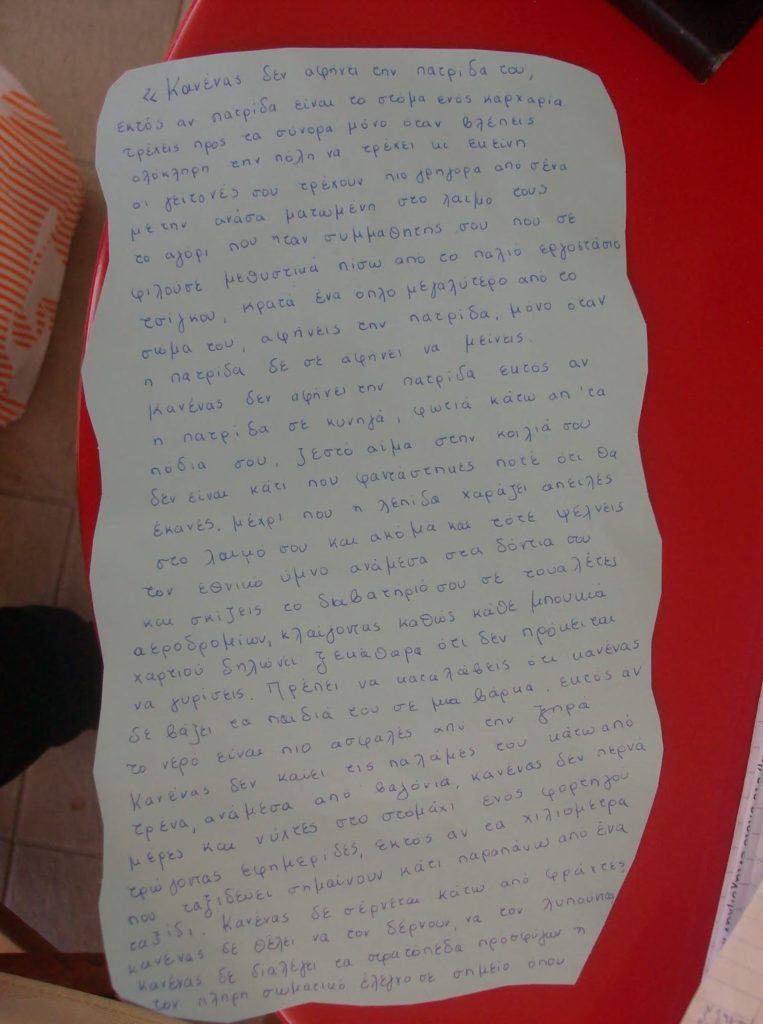 «Κανένας δέν αφήνει την πατρίδα του,
εκτός αν πατρίδα είναι το στόμα ενός καρχαρία
τρέχεις προς τα σύνορα μόνο όταν βλέπεις
ολόκληρη την πόλη να τρέχει κι εκείνη
οι γείτονές σου τρέχουν πιο γρήγορα από σένα
μέ την ανάσα ματωμένη στο λαιμό τους
το αγόρι που ήταν συμμαθητής σου που σε
φιλούσε μεθυστικά πίσω από το παλιό εργοστάσιο
τσίγκου, κρατά ένα όπλο μεγαλύτερο από το
σώμα του, αφήνεις την πατρίδα, μόνο όταν
η πατρίδα δε σέ αφήνει να μείνεις.
Κανένας δεν αφήνει την πατρίδα εκτός αν
η πατρίδα σε κυνηγά, φωτιά κάτω απ'τα
πόδια σου, ζεστό αίμα στην κοιλιά σου
δεν είναι κάτι που φαντάστηκες ποτέ ότι θα
έκανές, μέχρι που η λεπίδα χαράζει απειλές
στο λαιμό σου και ακόμα και τότε ψέλνεις
τον εθνικό ύμνο ανάμεσα στα δόντια σου
και σκίζεις το διαβατηριό σου σε τουαλέτες
αεροδρομίων, κλαίγοντας καθώς κάθε μπουκιά
χαρτιού δηλώνει ξεκάθαρα ότι δεν πρόκειται
να γυρίσεις. Πρέπει να καταλάβεις ότι κανένας
δέ βάζει τα παιδιά του σε μια βάρκα, εκτός αν
το νερό είναι πιο ασφαλές από την ξηρά
Κανένας δεν καίει τις παλάμες του κάτω από
τρένα, ανάμεσα από βαγόνια, κανένας δέν περνά
μέρες και νύχτες στο στομάχι ενός φορτηγού
τρώγοντας εφημερίδες, εκτός αν τα χιλιόμετρα
που ταξιδεύει σημαίνουν κάτι παραπάνω από ένα
ταξίδι. Κανένας δε σέρνεται κάτω από φράχτες
κανένας δε θέλει να τον δέρνουν, να τον λυπούνται
κανένας δε διαλέγει τα στρατόπεδα προσφύγων ή
τον πλήρη σωματικό έλεγχο σε σημείο όπου